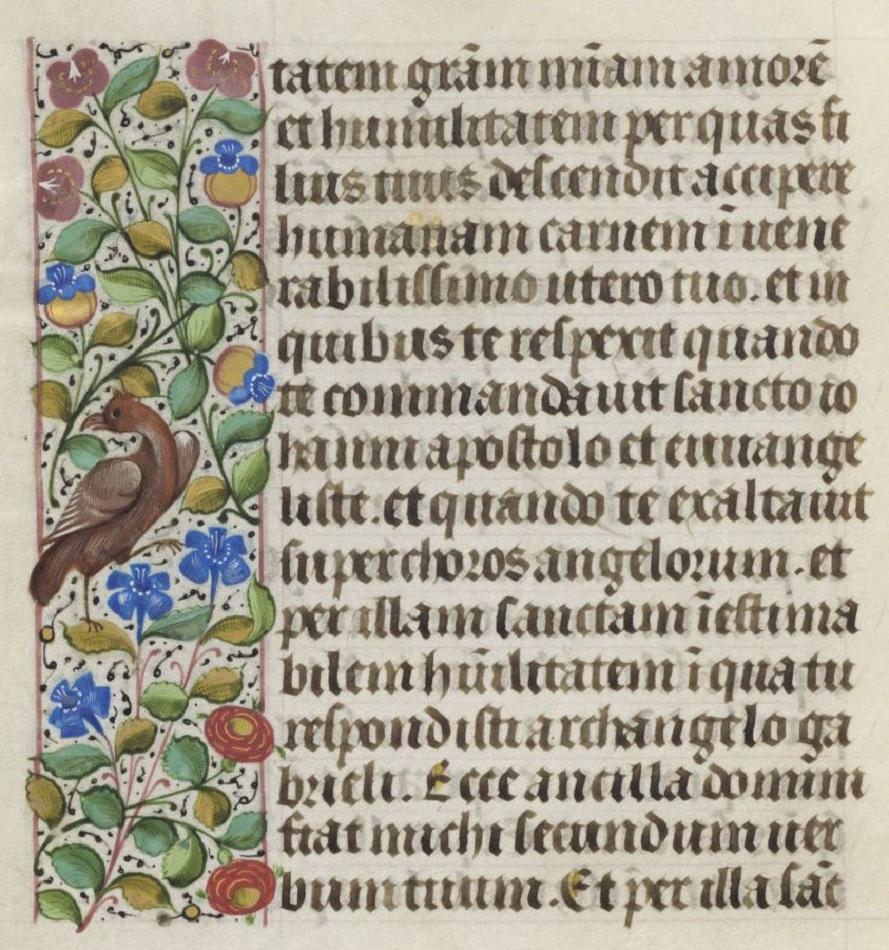 tatem grām mīam amorē
et humilitatem per quas fi
lius tuus descendit accipere
humanam carnem ī uene
rabilissimo utero tuo. et in
quibus te respexit quando
te commandauit sancto io
hanni apostolo et euuange
liste. et quando te exaltauit
super choros angelorum. et
per illam sanctam īestima
bilem hūilitatem ī qua tu
respondisti archangelo ga
brieli. Ecce ancilla domini
fiat michi secundum uer
bum tuum. Et per illa sāc